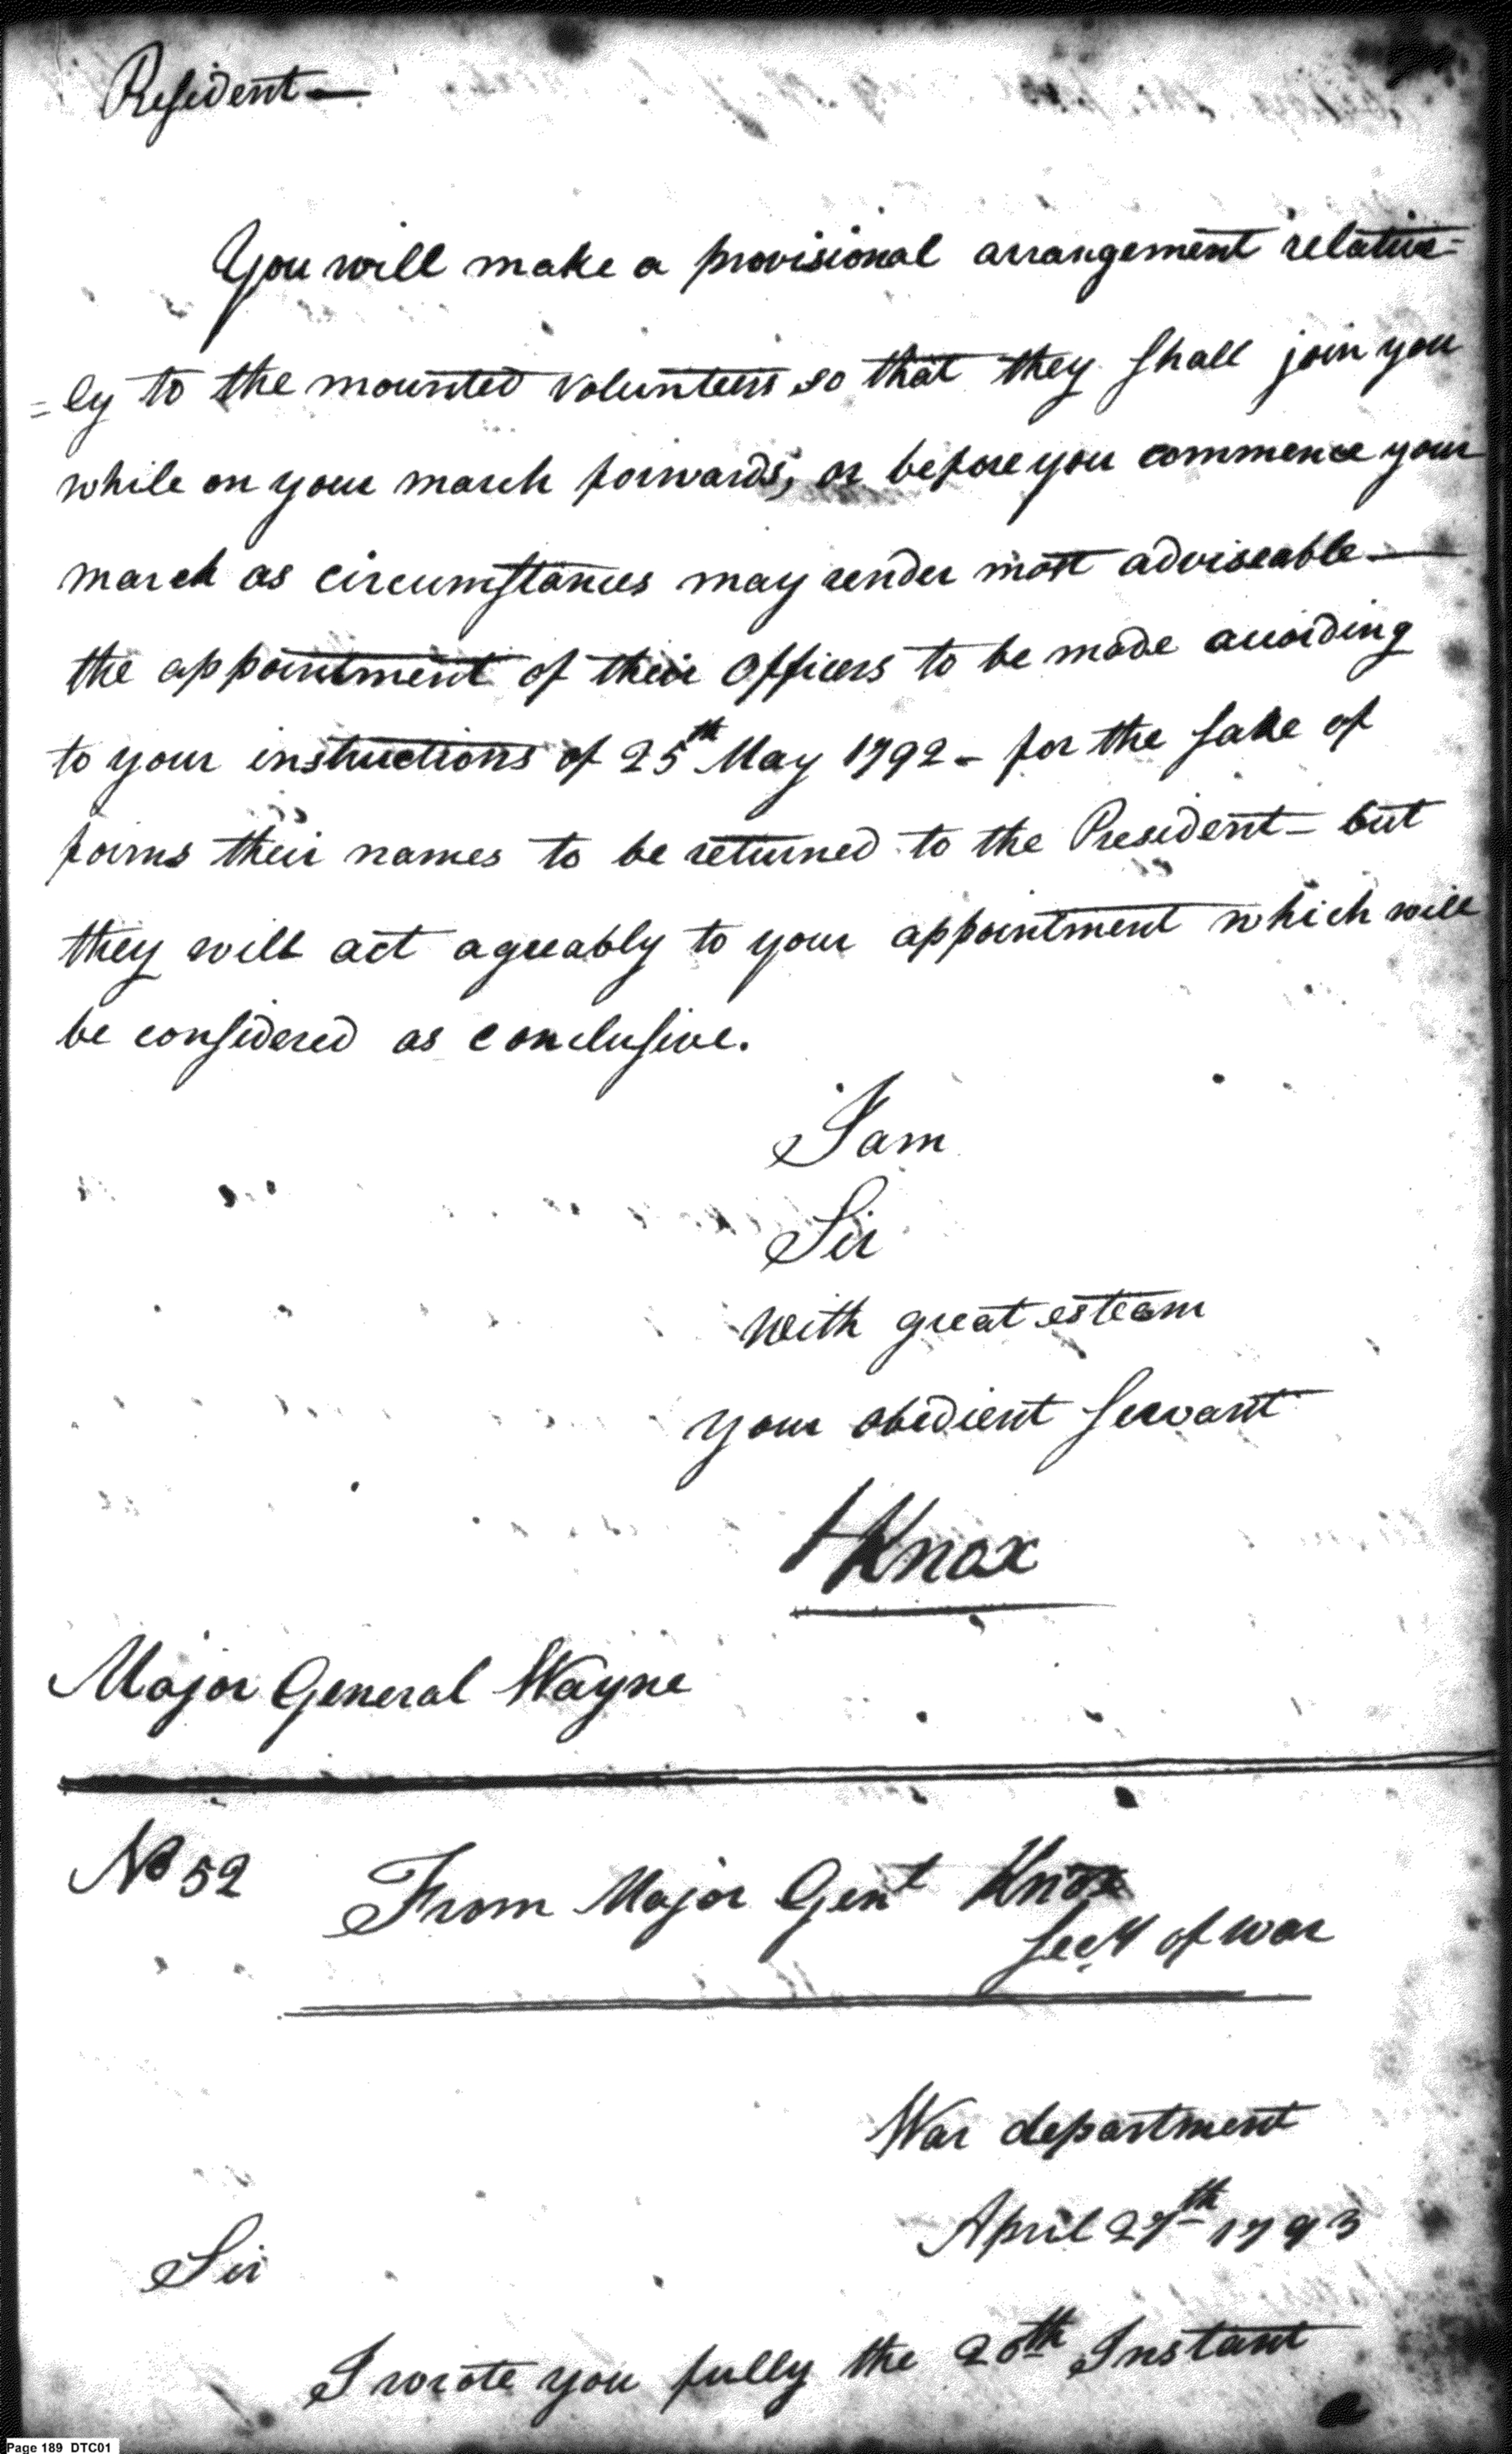 President—
You will make a provisional arrangement relative=
=ly to the mounted volunteers so that they shall join you
while on your march forwards, or before you commence your
march as circumstances may render most adviseable—
the appointment of their Officers to be made according
to your instructions of 25th May 1792 - for the sake of
forms their names to be returned to the President - but
they will act agreeably to your appointment which will
be considered as conclusive.
I am
Sir
with great esteem
your obedient servant
HKnox
Major General Wayne
No 52 From Major Genl Knox
Secy of war
War department
April 27th 1793
Sir
I wrote you fully the 20th Instant
Page 189 DTC01